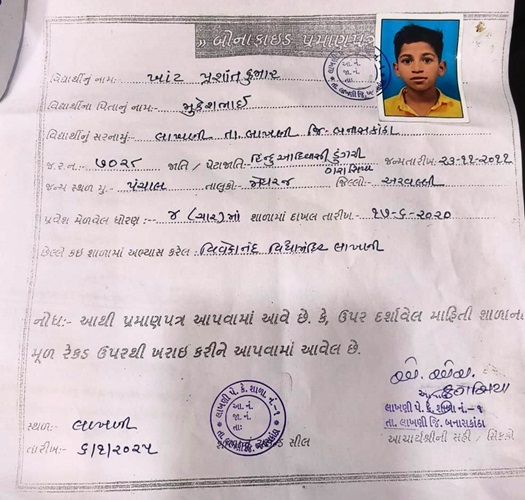 » બોનાફાઇડ પ્રમાણપત્ર
વિદ્યાર્થીનું નામ:- ખાંટ પ્રશાંતકુમાર
વિદ્યાર્થીના પિતાનું નામ:- મુકેશભાઈ
વિદ્યાર્થીનું સરનામું:- લાખણી તા. લાખણી જિ- બનાસકાંઠા
જ.ર.ન.:- ૭૦૨૬ જાતિ / પેટાજાતિ:- હિન્દુ આદિવાસી ડુંગરી ગરાસિયા જન્મતારીખ:- ૨૩-૧૧-૨૦૧૧
જન્મ સ્થળ મુ.- પંચાલ તાલુકો:- મેઘરજ જિલ્લો:- અરવલ્લી
પ્રવેશ મેળવેલ ધોરણ:-- ૪ (ચાર)માં શાળામાં દાખલ તારીખ:- ૧૭-૬-૨૦૨૦
છેલ્લે કઇ શાળામાં અભ્યાસ કરેલ:- વિવેકાનંદ વિદ્યામંદિર લાખણી
નોંધ:- આથી પ્રમાણપત્ર આપવામાં આવે છે. કે, ઉપર દર્શાવેલ માહિતી શાળાના
મૂળ રેકર્ડ ઉપરથી ખરાઇ કરીને આપવામાં આવેલ છે.
લાખણી પે. કે. શાળા નં.-૧
આ. નં.
જા. નં.
તા:
લાખણી પે. કે. શાળા નં.-૧
તા. લાખણી જિ. બનાસકાંઠા
સ્થળ:- લાખણી
તારીખ:- ૬/૧/૨૦૨૫
સીલ
આચાર્યશ્રીની સહી / સિક્કો